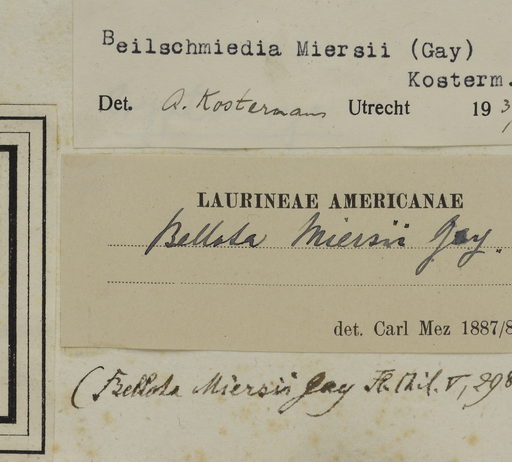 Beilschmiedia Miersii (Gay)
Kosterm.
Det. A. Kostermans Utrecht 193
LAURINEAE AMERICANAE
Bellota Miersii Gay.
det. Carl Mez 1887/8
(Bellota Miersii Gay Fl. Chil. V, 298